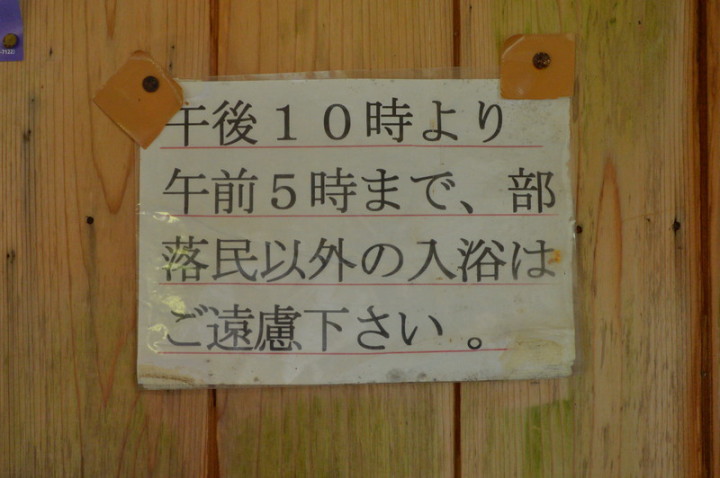 午後１０時より
午前５時まで、部
落民以外の入浴は
ご遠慮下さい。